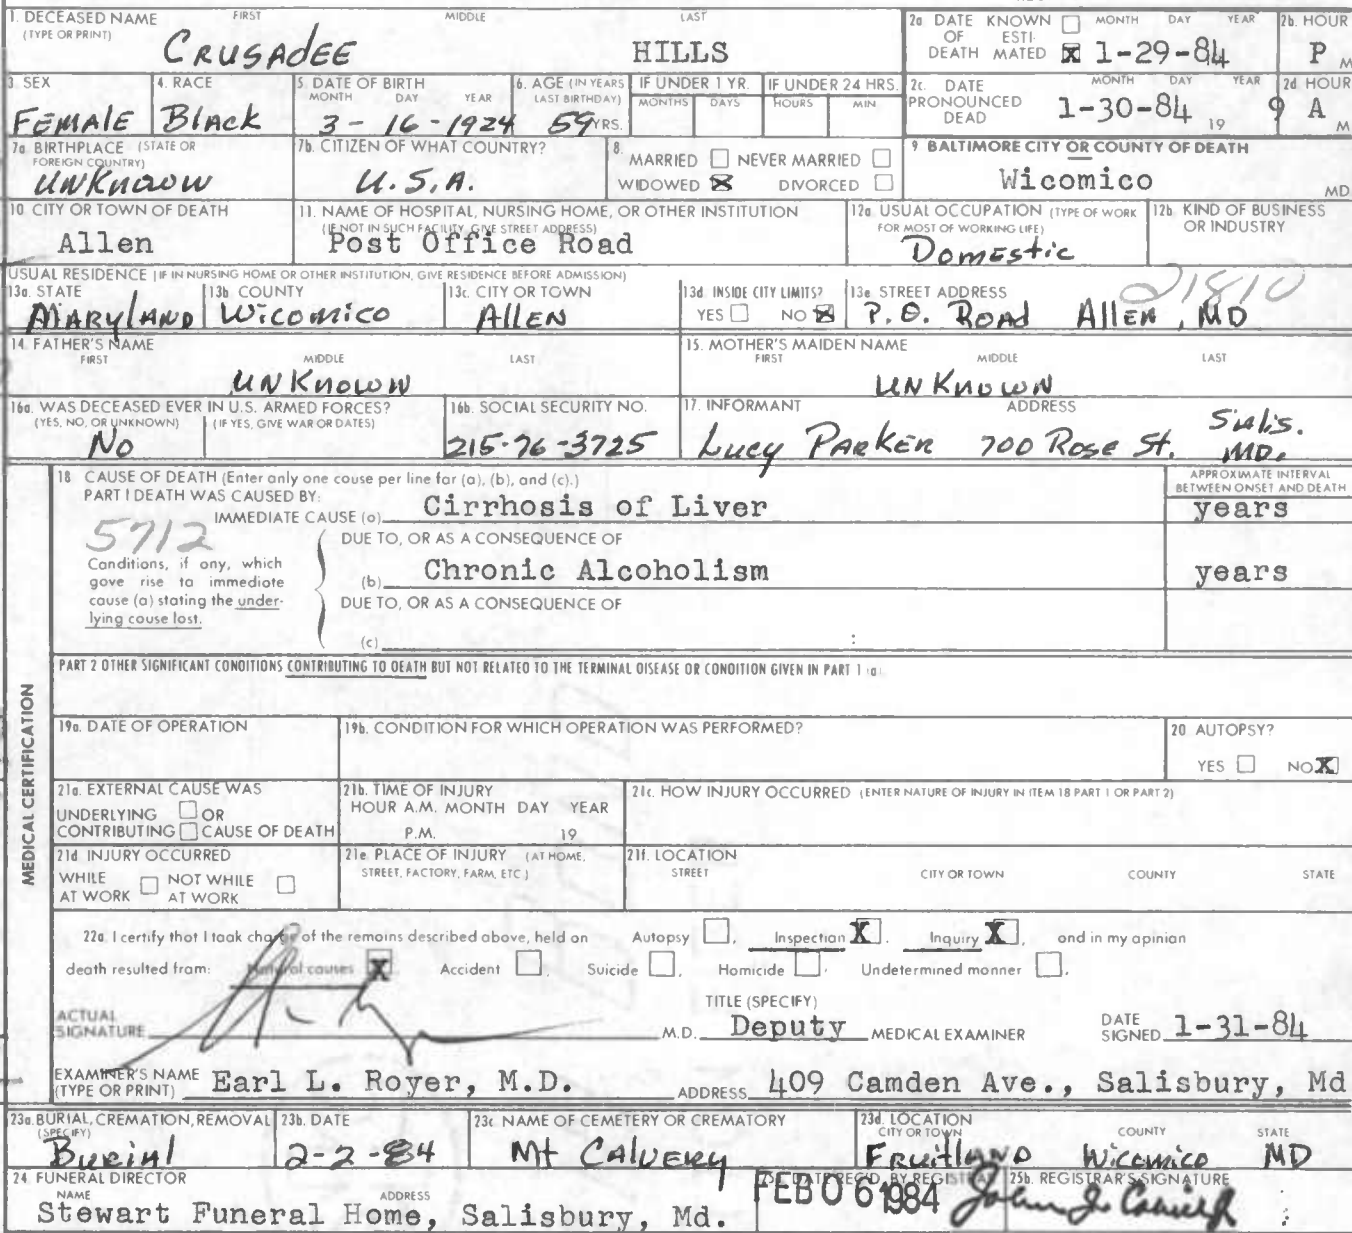 1. DECEASED NAME FIRST MIDDLE LAST
(TYPE OR PRINT)
CRUSADEE HILLS
2a DATE KNOWN ☐ MONTH DAY YEAR
OF ESTI-
DEATH MATED ☒ 1-29-84
2b. HOUR
P M
3. SEX
FEMALE
4. RACE
Black
5. DATE OF BIRTH
MONTH DAY YEAR
3 - 16 - 1924
6. AGE (IN YEARS
LAST BIRTHDAY)
59 YRS.
IF UNDER 1 YR.
MONTHS DAYS
IF UNDER 24 HRS.
HOURS MIN
2c. DATE MONTH DAY YEAR
PRONOUNCED
DEAD 1-30-84 19
2d HOUR
9 A M
7a BIRTHPLACE (STATE OR
FOREIGN COUNTRY)
UNKnoww
7b. CITIZEN OF WHAT COUNTRY?
U.S.A.
8.
MARRIED ☐ NEVER MARRIED ☐
WIDOWED ☒ DIVORCED ☐
9 BALTIMORE CITY OR COUNTY OF DEATH
Wicomico MD
10. CITY OR TOWN OF DEATH
Allen
11. NAME OF HOSPITAL, NURSING HOME, OR OTHER INSTITUTION
(IF NOT IN SUCH FACILITY, GIVE STREET ADDRESS)
Post Office Road
12a USUAL OCCUPATION (TYPE OF WORK
FOR MOST OF WORKING LIFE)
Domestic
12b KIND OF BUSINESS
OR INDUSTRY
USUAL RESIDENCE (IF IN NURSING HOME OR OTHER INSTITUTION, GIVE RESIDENCE BEFORE ADMISSION)
13a. STATE
MARYLAND
13b COUNTY
Wicomico
13c. CITY OR TOWN
ALLEN
13d INSIDE CITY LIMITS?
YES ☐ NO ☒
13e STREET ADDRESS 21810
P.O. ROAD AllEN, MD
14 FATHER'S NAME
FIRST MIDDLE LAST
UNKNOWN
15. MOTHER'S MAIDEN NAME
FIRST MIDDLE LAST
UNKNOWN
16a. WAS DECEASED EVER IN U.S. ARMED FORCES?
(YES, NO, OR UNKNOWN) (IF YES, GIVE WAR OR DATES)
No
16b. SOCIAL SECURITY NO.
215-76-3725
17. INFORMANT ADDRESS
Lucy PARKER 700 Rose St. Salis. MD.
18 CAUSE OF DEATH (Enter only one cause per line for (a), (b), and (c).)
PART I DEATH WAS CAUSED BY:
APPROXIMATE INTERVAL
BETWEEN ONSET AND DEATH
IMMEDIATE CAUSE (a) Cirrhosis of Liver years
5712
DUE TO, OR AS A CONSEQUENCE OF
Conditions, if any, which
gave rise to immediate
cause (a) stating the under-
lying cause last.
(b) Chronic Alcoholism years
DUE TO, OR AS A CONSEQUENCE OF
(c) :
PART 2 OTHER SIGNIFICANT CONDITIONS CONTRIBUTING TO DEATH BUT NOT RELATED TO THE TERMINAL DISEASE OR CONDITION GIVEN IN PART 1 (a).
MEDICAL CERTIFICATION
19a. DATE OF OPERATION
19b. CONDITION FOR WHICH OPERATION WAS PERFORMED?
20 AUTOPSY?
YES ☐ NO ☒
21a. EXTERNAL CAUSE WAS
UNDERLYING ☐ OR
CONTRIBUTING ☐ CAUSE OF DEATH
21b. TIME OF INJURY
HOUR A.M. MONTH DAY YEAR
P.M. 19
21c. HOW INJURY OCCURRED (ENTER NATURE OF INJURY IN ITEM 18 PART 1 OR PART 2)
21d INJURY OCCURRED
WHILE ☐ NOT WHILE ☐
AT WORK AT WORK
21e. PLACE OF INJURY (AT HOME,
STREET, FACTORY, FARM, ETC.)
21f. LOCATION
STREET CITY OR TOWN COUNTY STATE
22a. I certify that I took charge of the remains described above, held on Autopsy ☐, Inspection ☒. Inquiry ☒, and in my opinion
death resulted from: Natural causes ☒. Accident ☐, Suicide ☐, Homicide ☐, Undetermined manner ☐.
ACTUAL
SIGNATURE M.D.
TITLE (SPECIFY)
Deputy MEDICAL EXAMINER
DATE
SIGNED 1-31-84
EXAMINER'S NAME
(TYPE OR PRINT) Earl L. Royer, M.D. ADDRESS 409 Camden Ave., Salisbury, Md
23a. BURIAL, CREMATION, REMOVAL
(SPECIFY)
Burial
23b. DATE
2-2-84
23c NAME OF CEMETERY OR CREMATORY
Mt CALVERY
23d. LOCATION
CITY OR TOWN COUNTY STATE
FRUITLAND Wicomico MD
24 FUNERAL DIRECTOR
NAME ADDRESS
Stewart Funeral Home, Salisbury, Md.
25a. DATE REC'D. BY REGISTRAR
FEB 06 1984
25b. REGISTRAR'S SIGNATURE